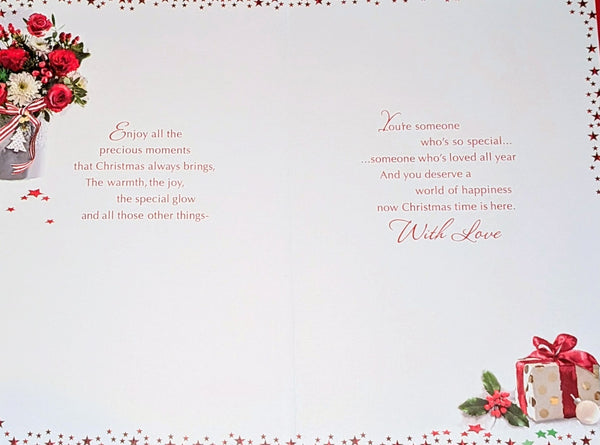 Enjoy all the
precious moments
that Christmas always brings,
The warmth, the joy,
the special glow
and all those other things-
You're someone
who's so special...
...someone who's loved all year
And you deserve a
world of happiness
now Christmas time is here.
With Love